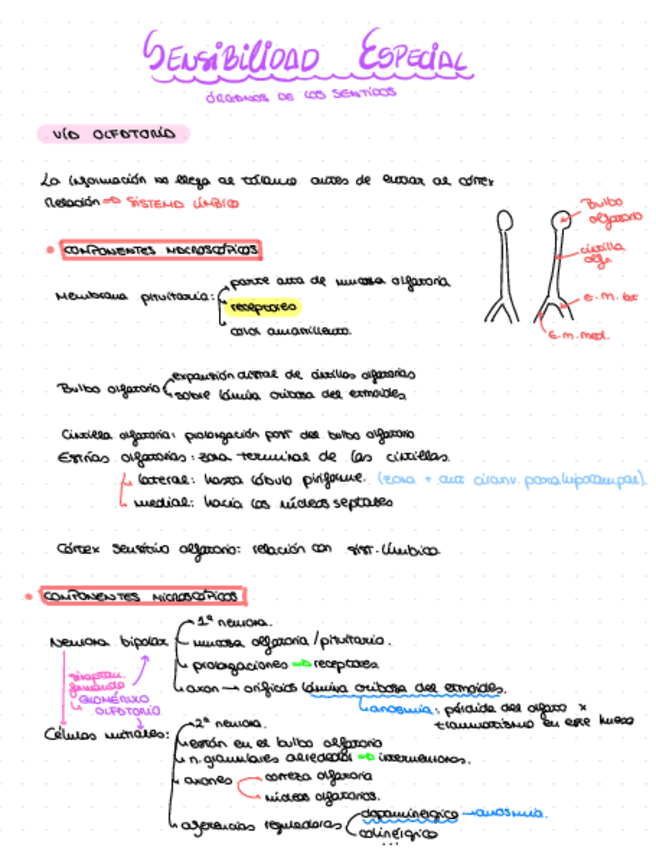 SENSIBILIDAD ESPECIAL
ÓRGANOS DE LOS SENTIDOS
VÍA OLFATORIA
La información no llega al tálamo antes de entrar al córtex
Relación → SISTEMA LÍMBICO
Bulbo olfatorio
cintilla olfa.
e.m. lat
e.m. med.
• COMPONENTES MACROSCÓPICOS
Membrana pituitaria:
parte alta de mucosa olfatoria
receptores
color amarillento.
Bulbo olfatorio
expansión distal de cintillas olfatorias
sobre lámina cribosa del etmoides
Cintilla olfatoria: prolongación post del bulbo olfatorio
Estrías olfatorias: zona terminal de las cintillas.
lateral: hasta lóbulo piriforme. (zona + ant circunv. parahipocampal)
medial: hacia los núcleos septales
Córtex sensitivo olfatorio: relación con sist. límbico
• COMPONENTES MICROSCÓPICOS
Neurona bipolar
1ª neurona.
mucosa olfatoria/pituitaria.
prolongaciones → receptores
axon → orificios lámina cribosa del etmoides.
anosmia: pérdida del olfato x traumatismo en este hueso
sinaptan formando
GLOMÉRULO OLFATORIO
Células mitrales:
2ª neurona.
están en el bulbo olfatorio
n. granulares alrededor → interneuronas.
axones
corteza olfatoria
núcleos olfatorios.
aferencias reguladoras
dopaminérgico → anosmia.
colinérgico
...